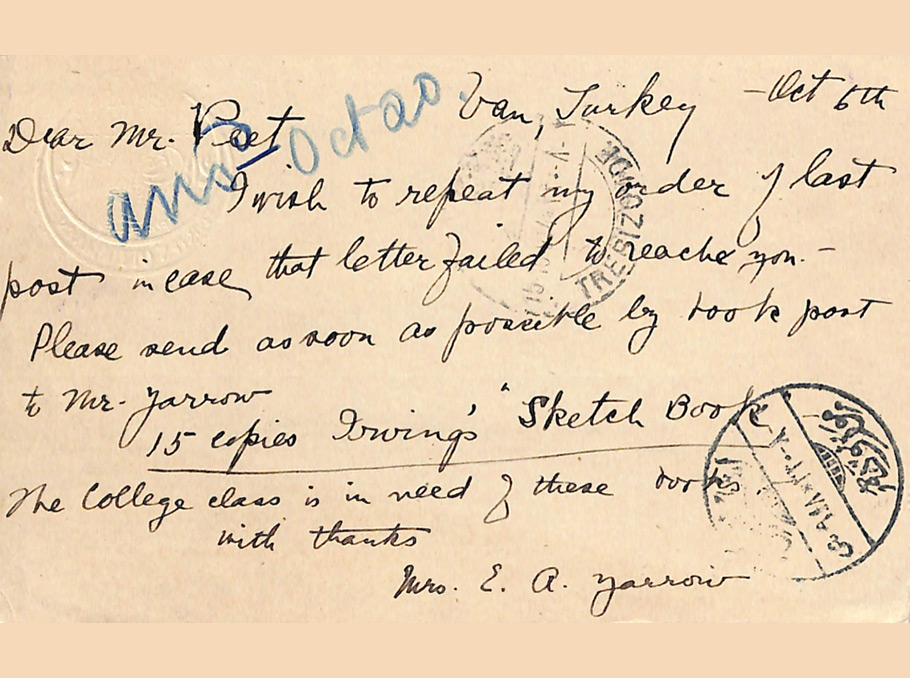 Van, Turkey - Oct 6th
Dear Mr. Peet
ans Oct 20.
I wish to repeat my order of last
post in case that letter failed to reache you. -
Please send as soon as possible by book post
to Mr. Yarrow
15 copies Irving's "Sketch Book" -
The College class is in need of these books
with thanks
Mrs. E. A. Yarrow
TREBIZONDE